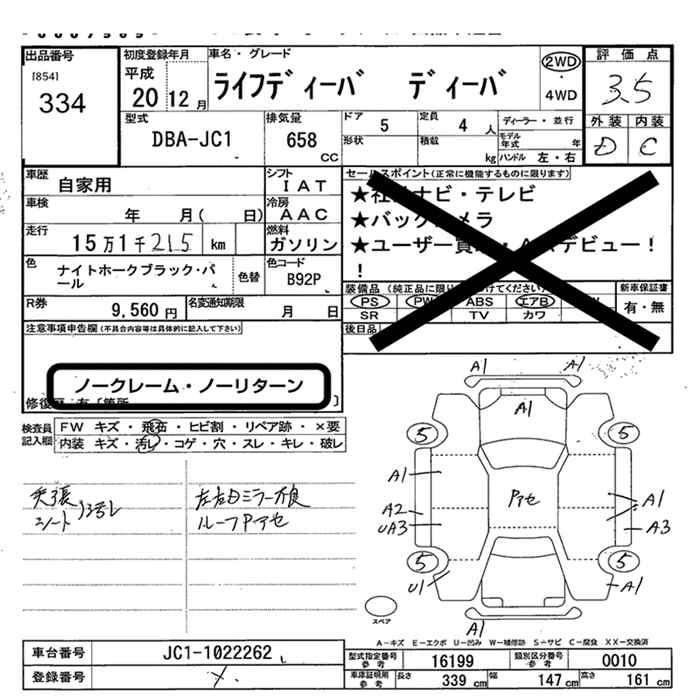 出品番号
[854]
334
初度登録年月
平成
20 12 月
車名・グレード
ライフディーバ ディーバ
2WD
・
4WD
評価点
3.5
外装 内装
D C
型式
DBA-JC1
排気量
658
cc
ドア
5
定員
4 人
ディーラー・並行
形状
積載
kg
モデル年式 年
ハンドル 左・右
車歴
自家用
シフト
IAT
車検
年 月( 日)
冷房
AAC
走行
15万1千215 km
燃料
ガソリン
色
ナイトホークブラック・パール
色替
色コード
B92P
R券
9,560 円
名変通知期限
月 日
セールスポイント(正常に機能するものに限ります)
★社
ナビ・テレビ
★バック
メラ
★ユーザー買
デビュー!
!
装備品
新車保証書
PS PW ABS エアB
有・無
SR TV カワ
後日品
注意事項申告欄(不具合内容等は具体的に記入して下さい)
ノークレーム・ノーリターン
検査員記入欄
FW キズ・飛石・ヒビ割・リペア跡・×要
内装 キズ・汚レ・コゲ・穴・スレ・キレ・破レ
シート
左右ドミラー不良
ルーフPアセ
A1 A1
A1
5 5
A1
Pアセ
A1
A2
UA3
A3
5 5
U1
A1
A1
スペア
A-キズ E-エクボ U-凹み W-補修跡 S-サビ C-腐食 XX-交換済
車台番号
JC1-1022262
登録番号
型式指定番号
参考
16199
類別区分番号
参考
0010
車庫証明用
参考
長さ
339 cm
幅
147 cm
高さ
161 cm